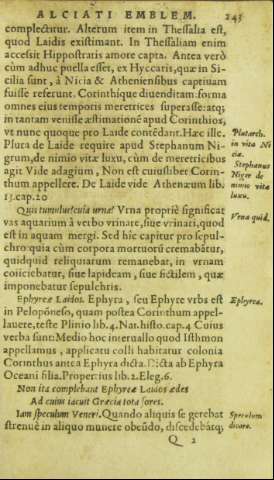 ALCIATI EMBLEM. 243
complectitur. Alterum item in Thessalia est,
quod Laidis existimant. In Thessaliam enim
accessit Hippostratis amore capta. Antea verò
cùm adhuc puella esset, ex Hyccaris, quæ in Si-
cilia sunt, à Nicia & Atheniensibus captiuam
fuisse referunt. Corinthique diuenditam: forma
omnes eius temporis meretrices superasse: atq;
in tantam venisse æstimationē apud Corinthios,
vt nunc quoque pro Laide contēdant. Hæc ille.
Plura de Laide require apud Stephanum Ni-
grum, de nimio vitæ luxu, cùm de meretricibus
agit Vide adagium, Non est cuiuslibet Corin-
thum appellere. De Laide vide Athenæum lib.
13. cap. 20
Plutarch.
in vita Ni
ciæ.
Stephanus
Niger de
nimio vitæ
luxu.
Quis tumulus? cuia urna? Vrna propriè significat
vas aquarium à verbo vrinate, siue vrinari, quod
est in aquam mergi. Sed hîc capitur pro sepul-
chro: quia cùm corpora mortuorū cremabātur,
quidquid reliquiarum remanebat, in vrnam
coijciebatur, siue lapideam, siue fictilem, quæ
imponebatur sepulchris.
Vrna quid.
Ephyreæ Laidos. Ephyra, seu Ephyre vrbs est
in Peloponeso, quam postea Corinthum appel-
lauere, teste Plinio lib. 4. Nat. histo. cap. 4 Cuius
verba sunt: Medio hoc interuallo quod Isthmon
appellamus, applicatu colli habitatur colonia
Corinthus antea Ephyra dicta. Dicta ab Ephyra
Oceani filia. Propertius lib. 2. Eleg. 6.
Ephyrea.
Non ita complebant Ephyreæ Laidos ædes
Ad cuius iacuit Græcia tota fores.
Iam speculum Veneri. Quando aliquis se gerebat
strenuè in aliquo munere obeūdo, discedebatq;
Speculum
dicare.
Q 2